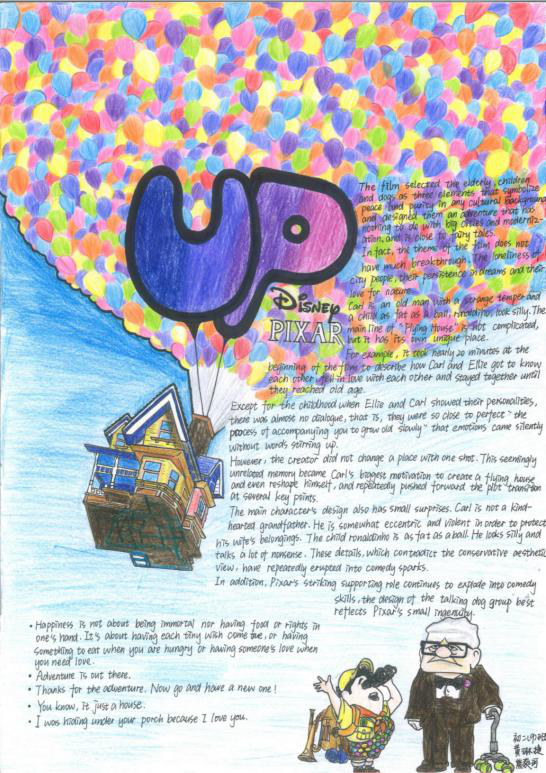 UP
The film selected the elderly, children
and dogs as three elements that symbolize
peace and purity in any cultural background
and designed them an adventure that has
nothing to do with big cities and moderniz-
ation, and is close to fairy tales.
In fact, the theme of the film does not
have much breakthrough. The loneliness of
city people, their persistence in dreams and their
love for nature.
DISNEY
PIXAR
Carl is an old man with a strange temper and
a child as fat as a ball, rinaldino, look silly. The
main line of "Flying House" is not complicated,
but it has its own unique place.
For example, it took nearly 20 minutes at the
beginning of the film to describe how Carl and Ellie got to know
each other fell in love with each other and stayed together until
they reached old age.
Except for the childhood when Ellie and Carl showed their personalities,
there was almost no dialogue, that is, they were so close to perfect "the
process of accompanying you to grow old slowly" that emotions came silently
without words stirring up.
However, the creator did not change a place with one shot. This seemingly
unrelated memory became Carl's biggest motivation to create a flying house
and even reshape himself, and repeatedly pushed forward the plot transition
at several key points.
The main character's design also has small surprises. Carl is not a kind-
hearted grandfather. He is somewhat eccentric and violent in order to protect
his wife's belongings. The child ronaldinho is as fat as a ball. He looks silly and
talks a lot of nonsense. These details, which contradict the conservative aesthetic
view, have repeatedly erupted into comedy sparks.
In addition, Pixar's striking supporting role continues to explode into comedy
skills, the design of the talking dog group best
reflects Pixar's small ingenuity.
• Happiness is not about being immortal nor having food or rights in
one's hand. It's about having each tiny wish come true, or having
something to eat when you are hungry or having someone's love when
you need love.
• Adventure is out there.
• Thanks for the adventure. Now go and have a new one!
• You know, it just a house.
• I was hiding under your porch because I love you.